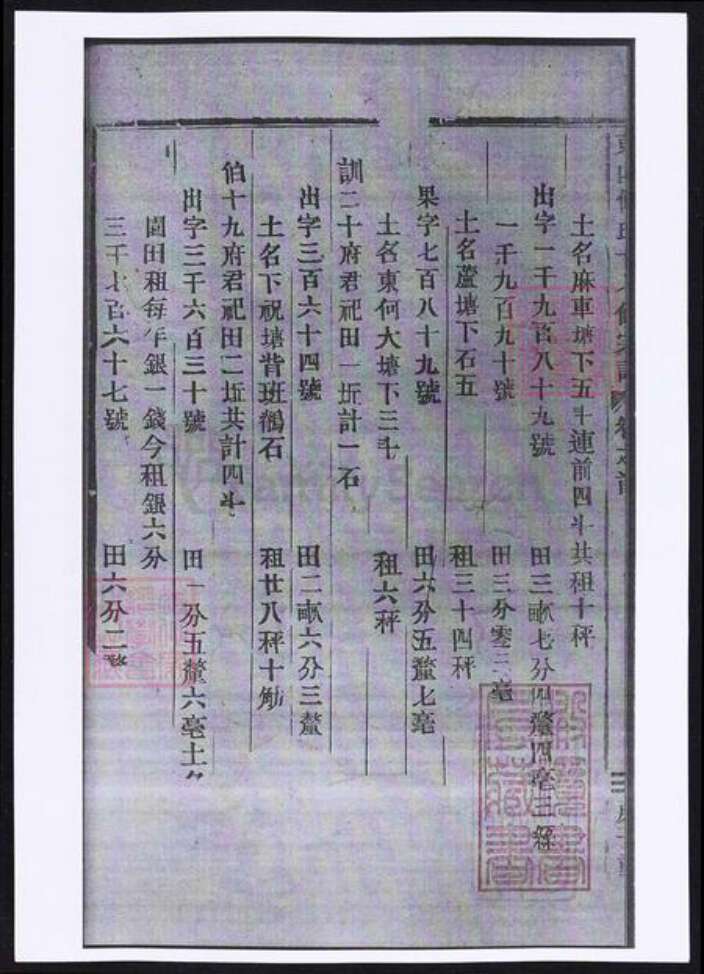 土名麻車塘下五斗連前四斗共租十秤
出字一千九百八十九號 田三畝七分四釐四毫三絲
一千九百九十號 田三分零二毫
土名蘆塘下石五 租三十四秤
果字七百八十九號 田六分五釐七毫
土名東何大塘下三斗 租六秤
訓二十府君祀田一坵計一石
出字三百六十四號 田二畝六分三釐
土名下祝塘背班鵤石 租廿八秤十觔
伯十九府君祀田二坵共計四斗
出字三千六百三十號 田一分五釐六毫土名
園田租每年銀一錢今租銀六分
三千七百六十七號 田六分二釐